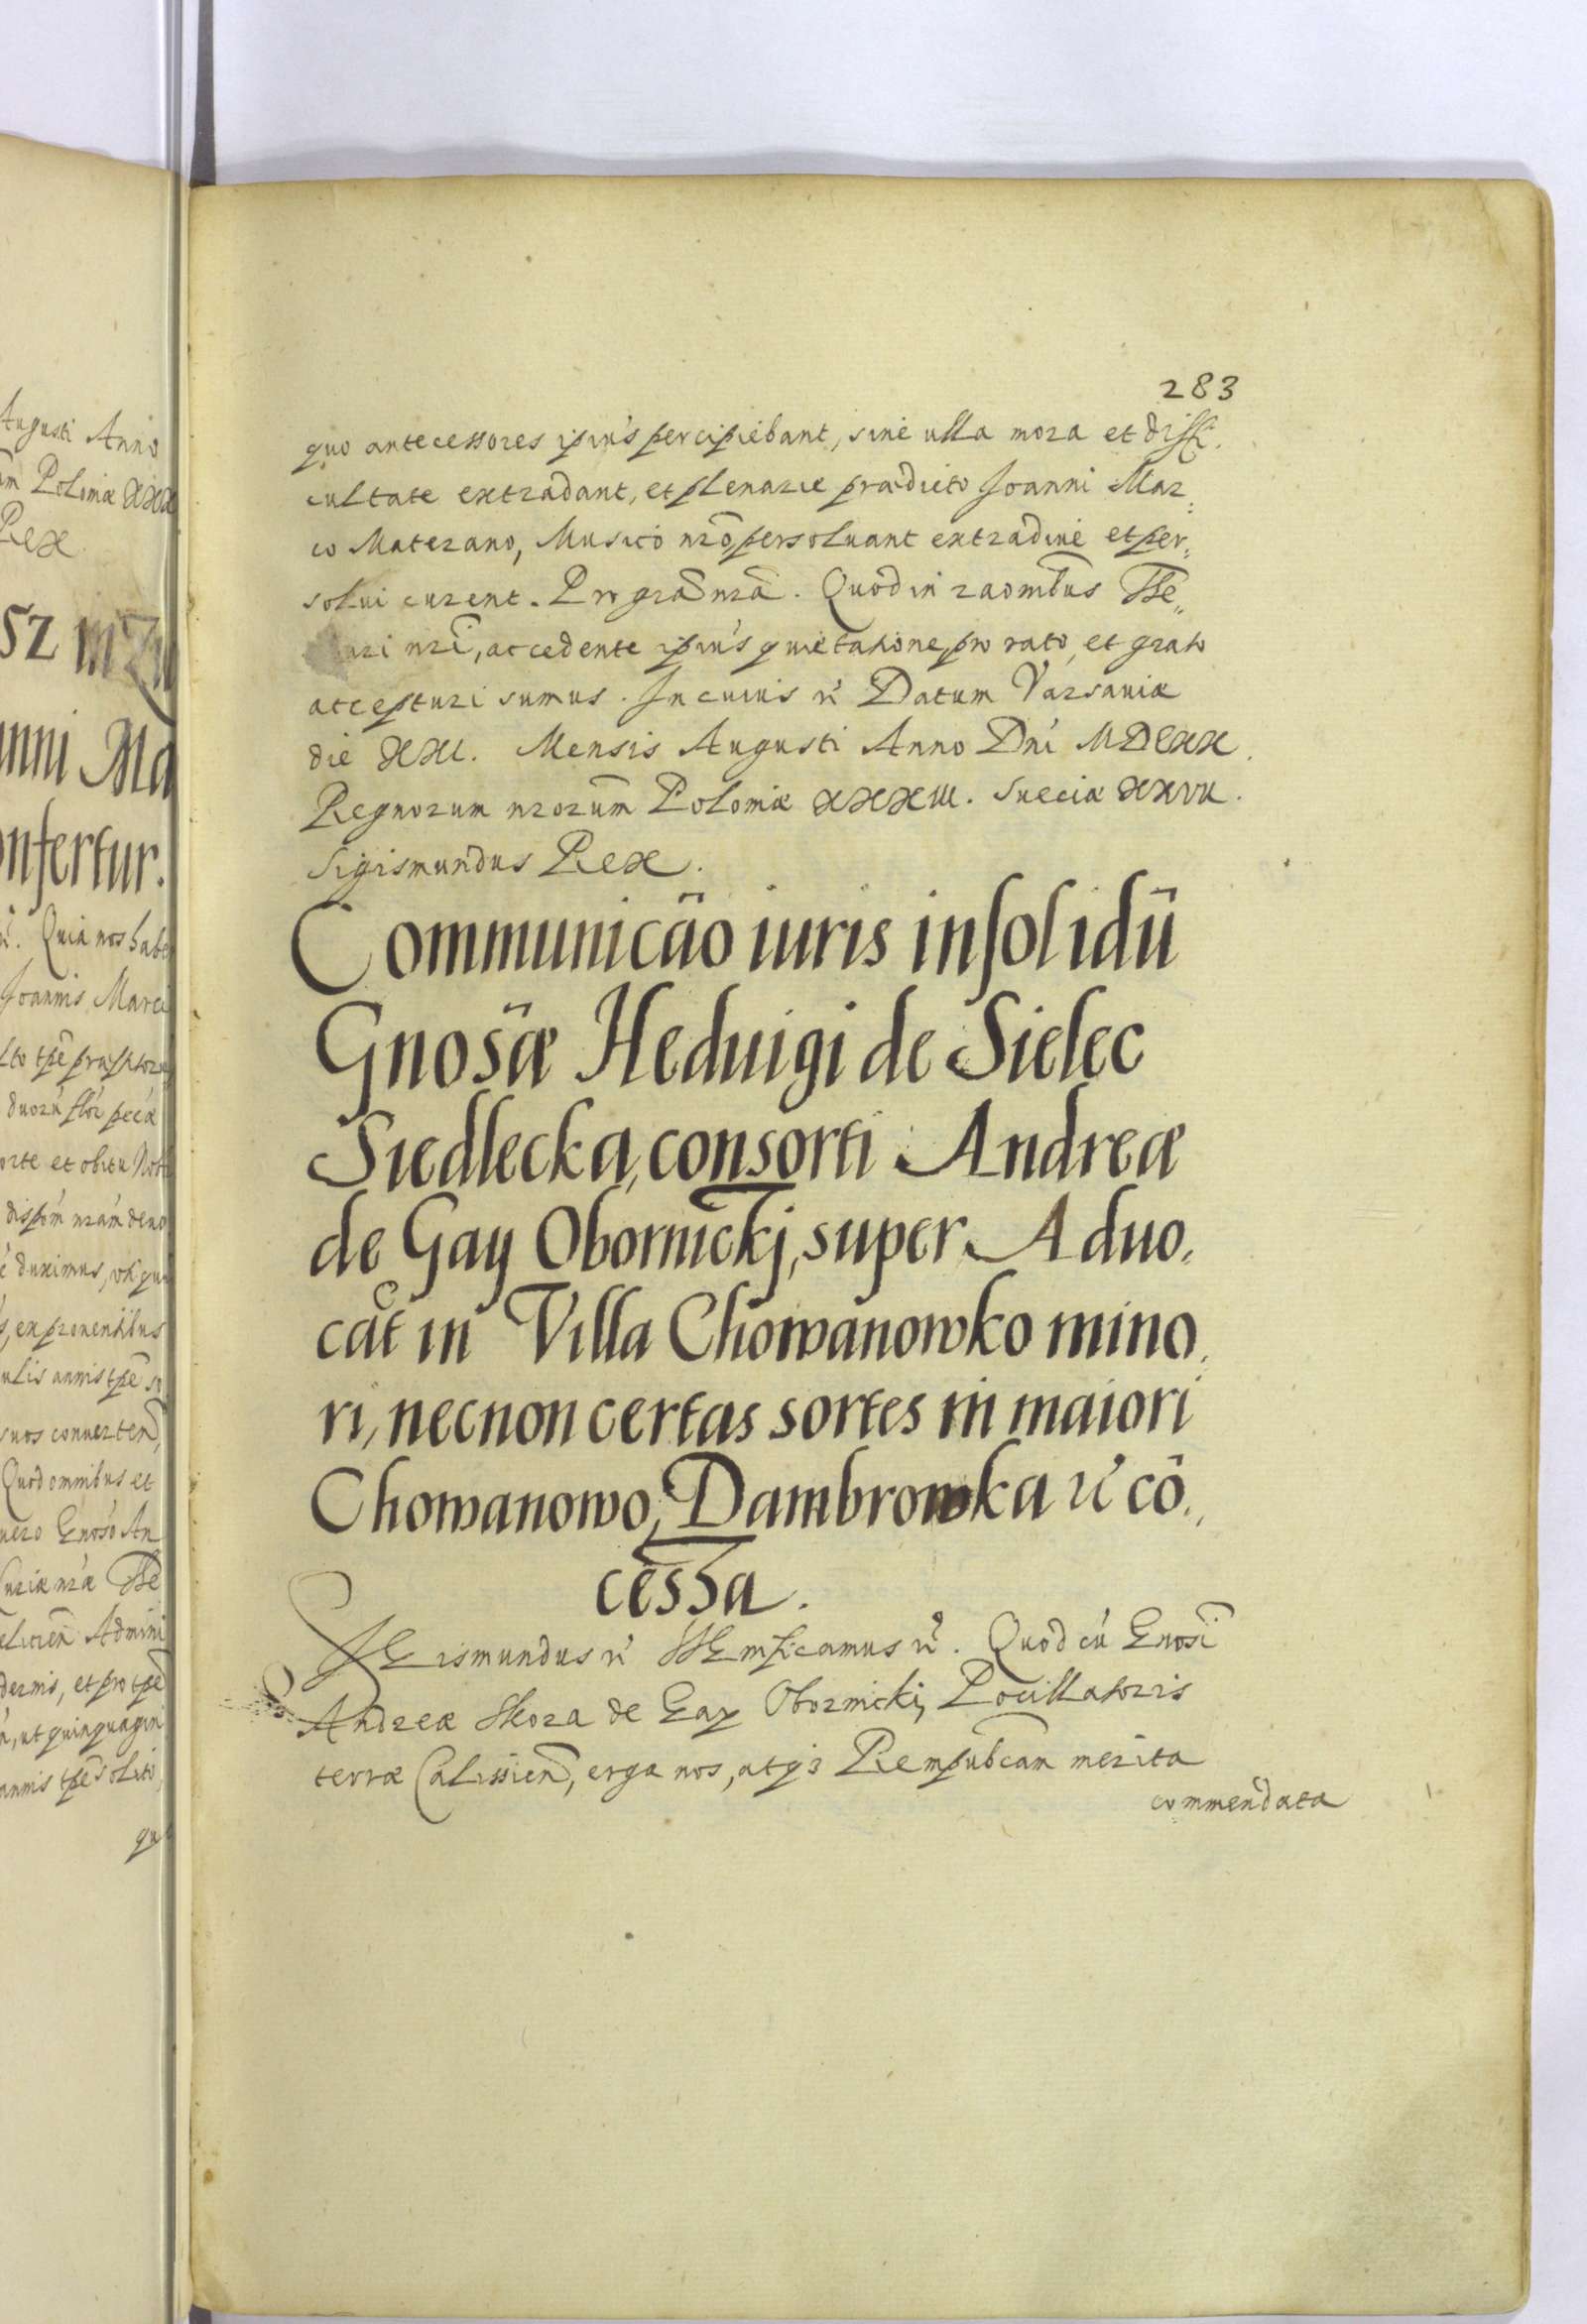 Augusti Anno
Poloniæ XXX
Rex
sz
anni Ma
onfertur.
Quia nos habe
Joannis Marci
lto tpē
duorū flōr pecæ
orte et obitu Nob
dispōm nr̄am deno
duximus, uti qu
exponentibus
ulis annis tpē so
suos conuerten̄,
Quod omnibus et
uero Gnōso An
Curiæ nr̄æ The
Admini
dernis, et pro tpē
ut quinquagin
annis tpē solito,
qu
283
quo antecessores ipius percipiebant, sine ulla mora et diffi,
cultate extradant, et plenarie prædicto Joanni Mar,
co Materano, Musico nrō persoluant extradiue et per,
solui curent. Pro gr̄a nrā. Quod in raōnibus The,,
auri nrī, accedente ipius quietatione, pro rato, et grato
accepturi sumus. In cuius rei Datum Varsauiæ
die XXII. Mensis Augusti Anno Dni MDCXX.
Regnorum nrorum Poloniæ XXXIII. Sueciæ XXVII.
Sigismundus Rex.
Communicāo iuris insolidū
Gnosæ Heduigi de Sielec
Siedlecka, consorti Andreæ
de Gay Obornickj, super Aduo,
cāt in Villa Chowanowko mino,
ri, necnon certas sortes in maiori
Chowanowo, Dambrowka rc cō,,
cessa.
SIGismundus rc SIGnificamus rc. Quod cū Gnosi
Andreæ Skora de Gay Obornicki, Pocillatoris
terræ Calissien̄, erga nos, atqz Rempubcam merita
commendata